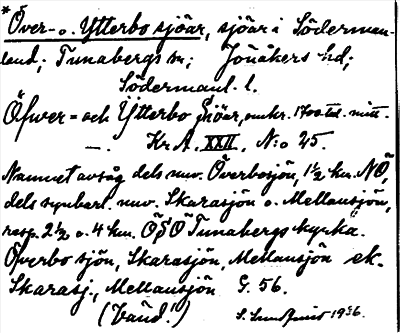 * Över- o. Ytterbo sjöar, sjöar i Söderman-
land; Tunabergs sn; Jönåkers hd;
Södermanl. l.
Öfwer= och Ytterbo Siöar, omkr. 1700 tal. mitt.
—. Kr. A. XXII, N:o 25.
Namnet avsåg dels nuv. Överbosjön, 1½ km. NÖ,
dels synbarl. nuv. Skarasjön o. Mellansjön,
resp. 2½ o. 4 km. ÖSÖ Tunabergs kyrka.
Överbo sjön, Skarasjön, Mellansjön ek.
Skarasj., Mellansjön G. 56.
(Vänd.) 1936.